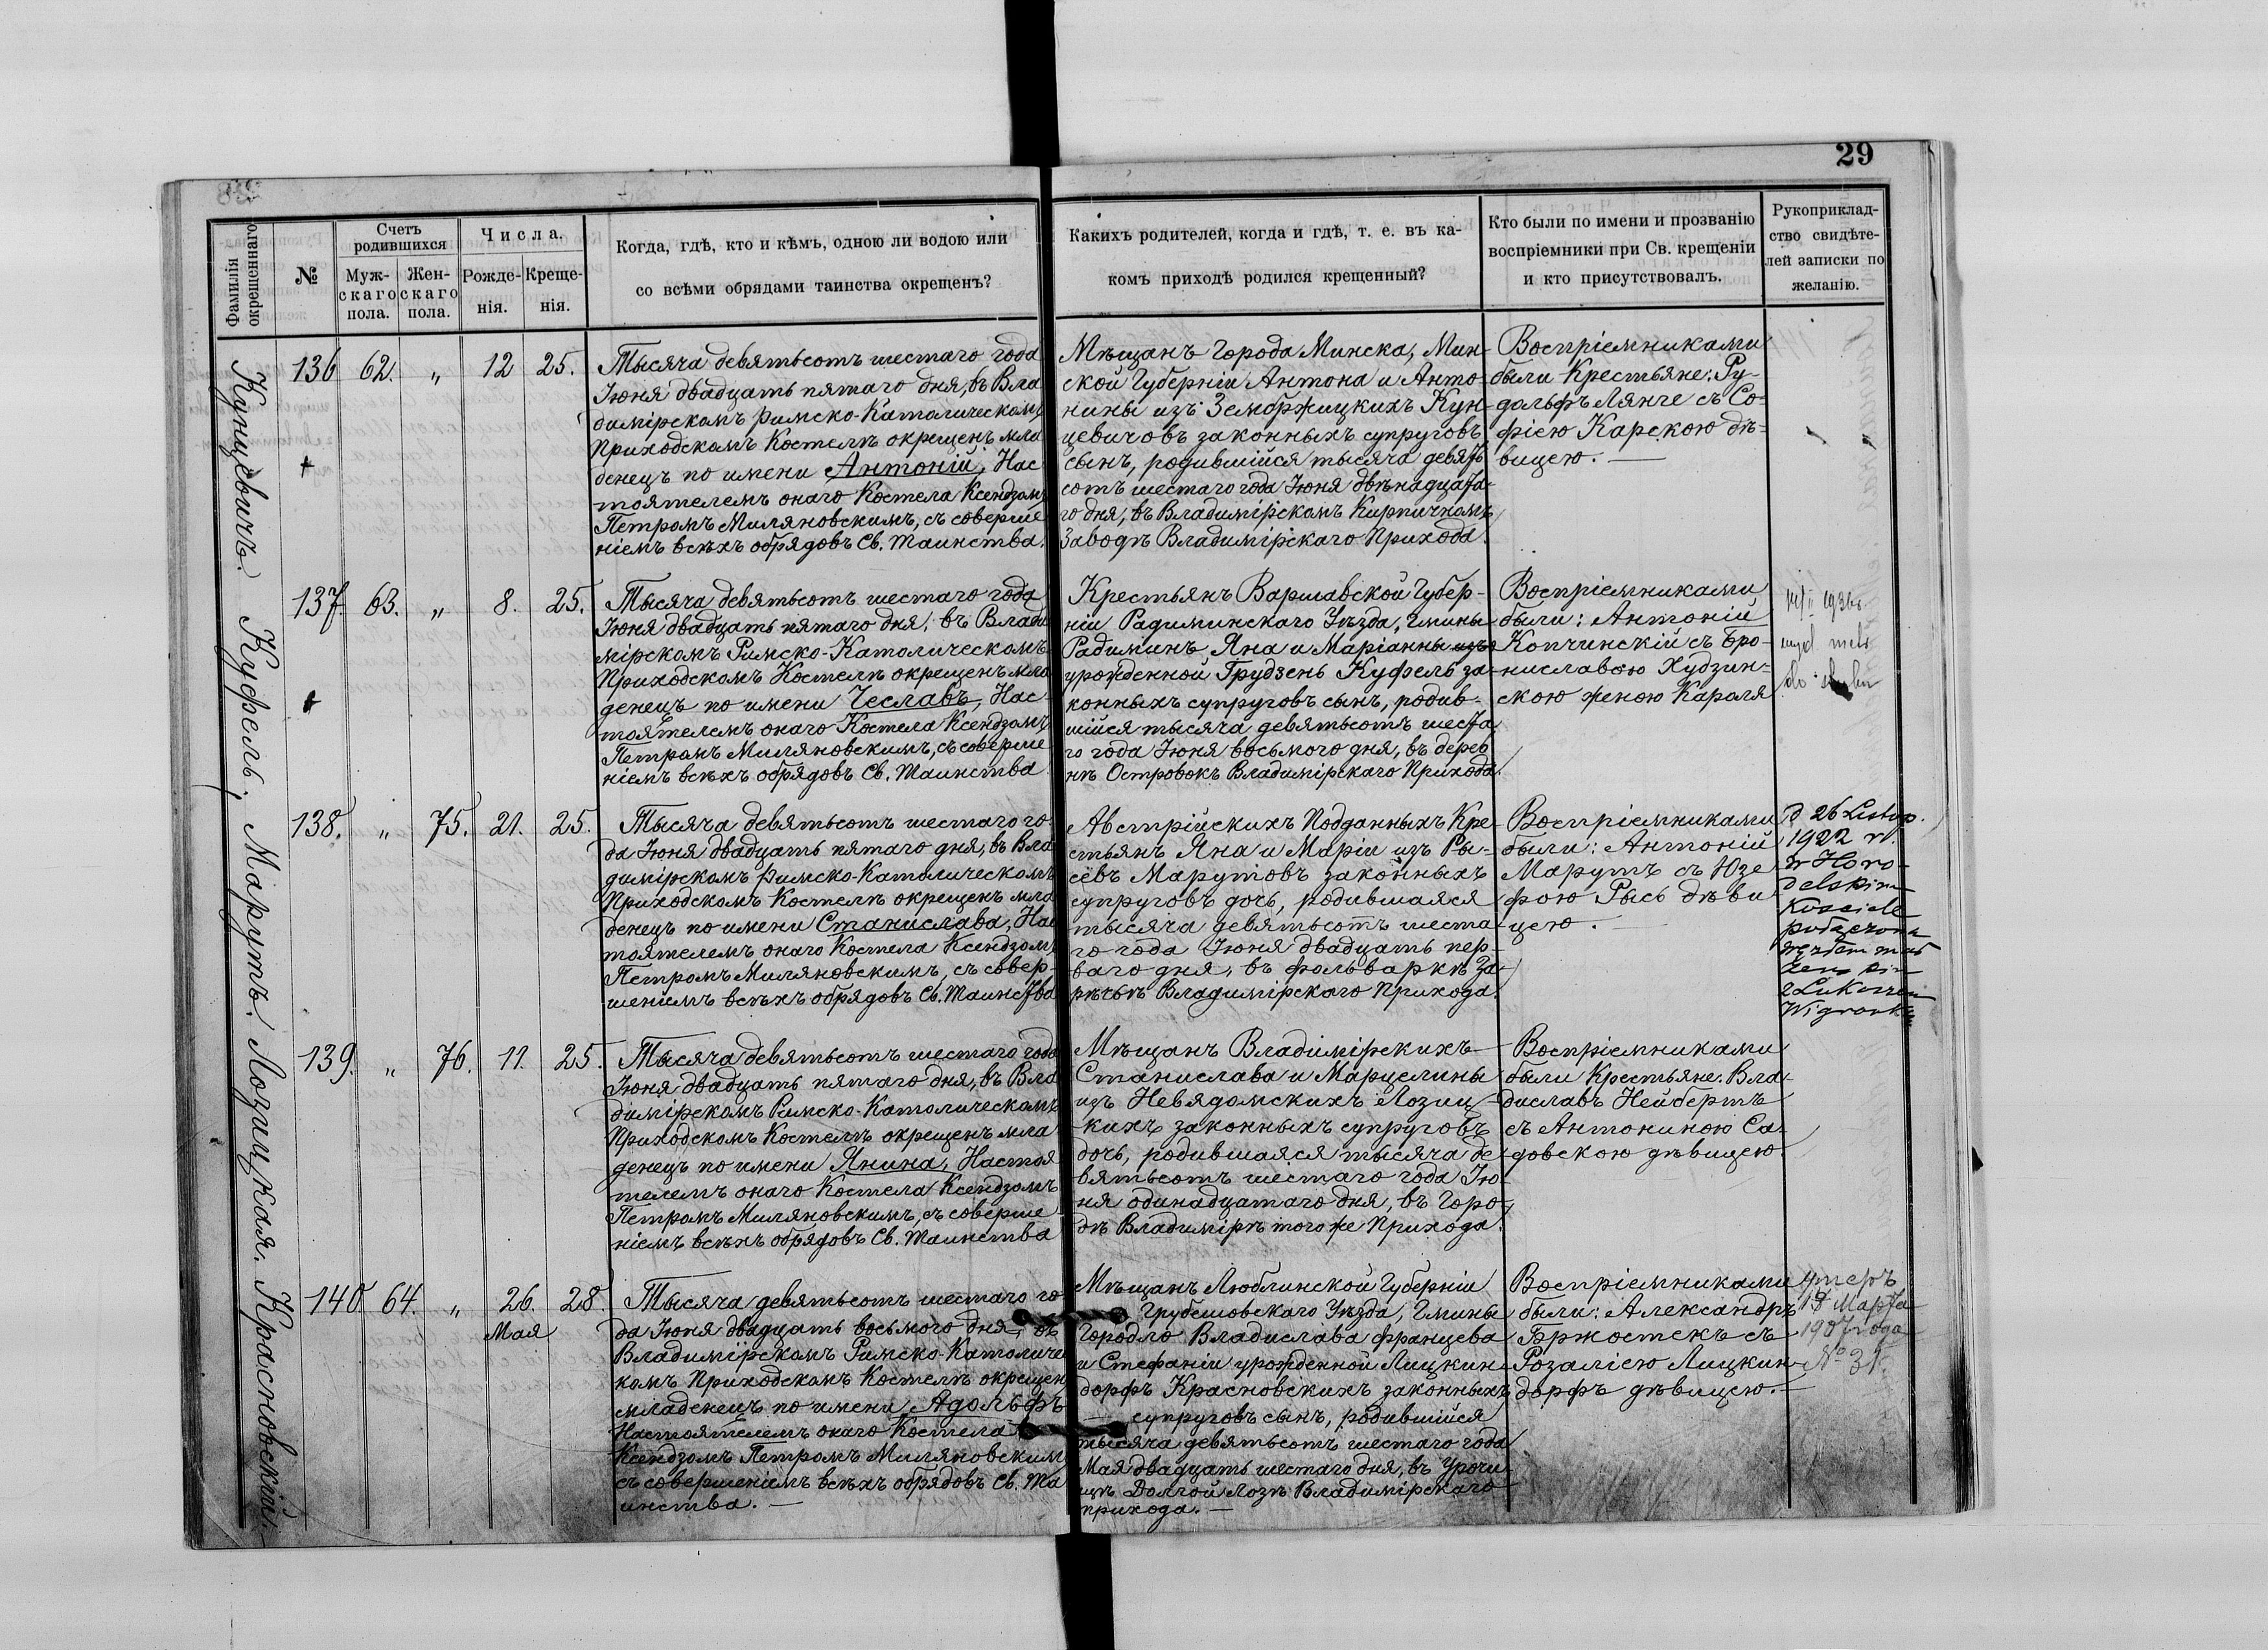 29
Фамилія окрещеннаго
№
Счетъ родившихся
Муж-
скаго
пола.
Жен-
скаго
пола.
Числа.
Рожде-
нія.
Креще-
нія.
Когда, гдѣ, кто и кѣмъ, одною ли водою или
со всѣми обрядами таинства окрещенъ?
Какихъ родителей, когда и гдѣ, т. е. въ ка-
комъ приходѣ родился крещенный?
Кто были по имени и прозванію
воспріемники при Св. крещеніи
и кто присутствовалъ.
Рукоприклад-
ство свидѣте-
лей записки по
желанію.
Кунцевичъ.
136 62. „ 12 25.
Тысяча девятьсотъ шестаго года
Іюня двадцать пятаго дня, въ Вла
димірскомъ Римско-Католическомъ
Приходскомъ Костелѣ окрещенъ мла
денецъ по имени Антоній, Нас
тоятелемъ онаго Костела Ксендзомъ
Петромъ Миляновскимъ, съ соверше
ніемъ всѣхъ обрядовъ Св. Таинства.
Мѣщанъ Города Минска, Мин-
ской Губерніи Антона и Анто-
нины изъ Зембржицкихъ Кун-
цевичовъ законныхъ супруговъ
сынъ, родившійся тысяча девять
сотъ шестаго года Іюня двѣнадцата-
го дня, въ Владимірскомъ Кирпичномъ
Заводѣ Владимірскаго Прихода.
Воспріемниками
были Крестьяне: Ру-
дольфъ Лянге съ Со-
фіею Карскою дѣ-
вицею. —
Куфель,
137. 63. „ 8. 25.
Тысяча девятьсотъ шестаго года
Іюня двадцать пятаго дня, въ Влади
мірскомъ Римско-Католическомъ
Приходскомъ Костелѣ окрещенъ мла
денецъ по имени Чеславъ, Нас-
тоятелемъ онаго Костела Ксендзомъ
Петромъ Миляновскимъ, съ соверше
ніемъ всѣхъ обрядовъ Св. Таинства
Крестьянъ Варшавской Губер-
ніи Радиминскаго Уѣзда, Гмины
Радиминъ Яна и Маріанны изъ
урожденной Грудзень Куфель за-
конныхъ супруговъ сынъ, родив-
шійся тысяча девятьсотъ шеста
го года Іюня восьмого дня, въ дерев
нѣ Островокъ Владимірскаго Прихода.
Воспріемниками
были: Антоній
Копчинскій съ Бро-
ниславою Худзин-
скою женою Кароля
1936
wyd. metr
do
Марутъ.
138. „ 75. 21. 25.
Тысяча девятьсотъ шестаго го
да Іюня двадцать пятаго дня, въ Вла
димірскомъ Римско-Католическомъ
Приходскомъ Костелѣ окрещенъ мла
денецъ по имени Станислава, Нас
тоятелемъ онаго Костела Ксендзомъ
Петромъ Миляновскимъ, съ совер-
шеніемъ всѣхъ обрядовъ Св. Таинства
Австрійскихъ Подданныхъ Кре-
стьянъ Яна и Маріи изъ Ры-
сёвъ Марутовъ законныхъ
супруговъ дочь, родившаяся
тысяча девятьсотъ шеста-
го года Іюня двадцать пер-
ваго дня, въ фольваркѣ За-
рѣчьѣ Владимірскаго Прихода.
Воспріемниками
были: Антоній
Марутъ съ Юзе
фою Рысь дѣви
цею. —
D 26 Listop.
1922 r.
w Horo-
delskim
Kosciele
połączona
węzłem mał
żenskim
z Lukaszem
Лозицкая.
139. „ 76. 11. 25.
Тысяча девятьсотъ шестаго года
Іюня двадцать пятаго дня, въ Вла
димірскомъ Римско-Католическомъ
Приходскомъ Костелѣ окрещенъ мла
денецъ по имени Янина, Настоя
телемъ онаго Костела Ксендзомъ
Петромъ Миляновскимъ, съ соверше
ніемъ всѣхъ обрядовъ Св. Таинства
Мѣщанъ Владимірскихъ
Станислава и Марцелины
изъ Невядомскихъ Лозиц-
кихъ законныхъ супруговъ
дочь, родившаяся тысяча де-
вятьсотъ шестаго года Ію
ня одинадцатаго дня, въ Горо-
дѣ Владимірѣ того же Прихода.
Воспріемниками
были Крестьяне: Вла-
диславъ Нейбертъ
съ Антониною Са-
довскою дѣвицею.
Красновскій.
140 64. „ 26. 28.
Мая
Тысяча девятьсотъ шестаго го
да Іюня двадцать восьмого дня, въ
Владимірскомъ Римско-Католичес
комъ Приходскомъ Костелѣ окрещен
младенецъ по имени Адольфъ
Настоятелемъ онаго Костела
Ксендзомъ Петромъ Миляновским
съ совершеніемъ всѣхъ обрядовъ Св. Та
инства. —
Мѣщанъ Люблинской Губерніи
Грубешовскаго Уѣзда, Гмины
Городло Владислава Францева
и Стефаніи урожденной Лицкин-
дорфъ Красновскихъ законныхъ
супруговъ сынъ, родившійся
тысяча девятьсотъ шестаго года
Мая двадцать шестаго дня, въ Урочи-
щѣ Долгой Лозѣ Владимірскаго
прихода. —
Воспріемниками
были: Александръ
Бржостекъ съ
Розаліею Лицкин-
дорфъ дѣвицею. —
умеръ
Марта
1907 года
№ 31.